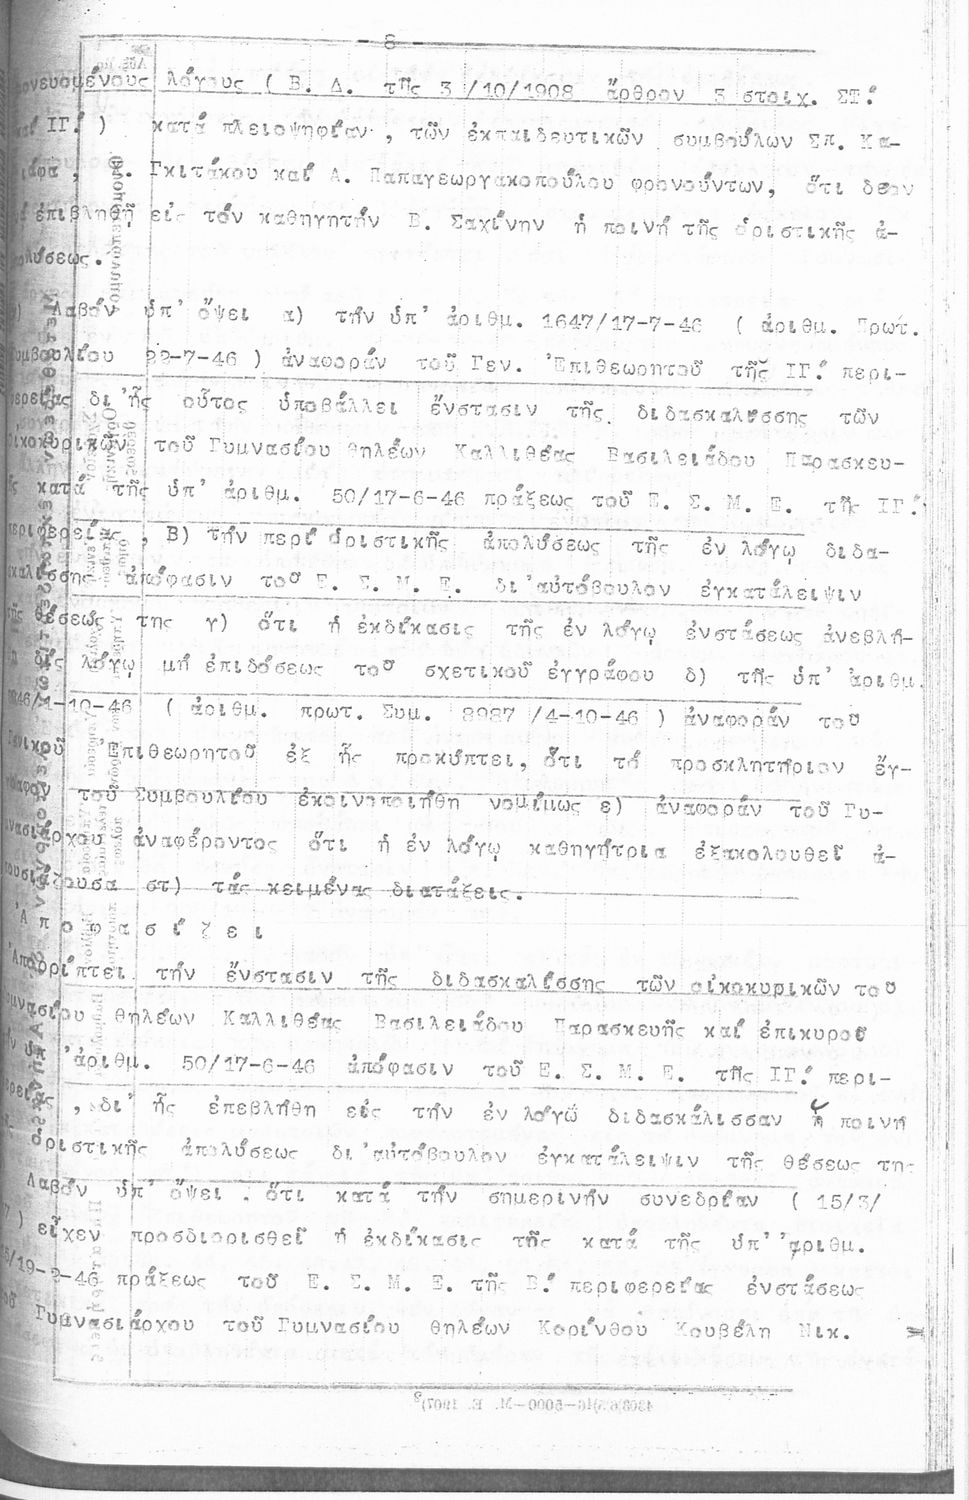 - 8 -
λόγους ( Β. Δ. τῆς 3 /10/1908 ἄρθρον 3 στοιχ. ΣΤ΄
ΙΓ΄ ) κατά πλειοψηφίαν , τῶν ἐκπαιδευτικῶν συμβούλων Σπ. Κα-
Γκιτάκου καί Α. Παπαγεωργακοπούλου φρονούντων, ὅτι δέον
ἐπιβληθῇ εἰς τόν καθηγητήν Β. Σαχίνην ἡ ποινή τῆς ὁριστικῆς ἀ-
πολύσεως.
Λαβόν ὑπ' ὄψει α) τήν ὑπ' ἀριθμ. 1647/17-7-46 ( ἀριθμ. Πρωτ.
Συμβουλίου 22-7-46 ) ἀναφοράν τοῦ Γεν. Ἐπιθεωρητοῦ τῆς ΙΓ΄ περι-
φερείας δι' ἧς οὗτος ὑποβάλλει ἔνστασιν τῆς διδασκαλίσσης τῶν
οἰκοκυρικῶν τοῦ Γυμνασίου θηλέων Καλλιθέας Βασιλειάδου Παρασκευ-
ῆς κατά τῆς ὑπ' ἀριθμ. 50/17-6-46 πράξεως τοῦ Ε. Σ. Μ. Ε. τῆς ΙΓ΄
περιφερείας , Β) τήν περί ὁριστικῆς ἀπολύσεως τῆς ἐν λόγῳ διδα-
σκαλίσσης ἀπόφασιν τοῦ Ε. Σ. Μ. Ε. δι' αὐτόβουλον ἐγκατάλειψιν
τῆς θέσεώς της γ) ὅτι ἡ ἐκδίκασις τῆς ἐν λόγῳ ἐνστάσεως ἀνεβλή-
θη εἰς λόγῳ μή ἐπιδόσεως τοῦ σχετικοῦ ἐγγράφου δ) τῆς ὑπ' ἀριθμ.
/1-10-46 ( ἀριθμ. πρωτ. Συμ. 8987 /4-10-46 ) ἀναφοράν τοῦ
Γενικοῦ Ἐπιθεωρητοῦ ἐξ ἧς προκύπτει, ὅτι τό προσκλητήριον ἔγ-
γραφον τοῦ Συμβουλίου ἐκοινοποιήθη νομίμως ε) ἀναφοράν τοῦ Γυ-
μνασιάρχου ἀναφέροντος ὅτι ἡ ἐν λόγῳ καθηγήτρια ἐξακολουθεῖ ἀ-
πουσιάζουσα στ) τάς κειμένας διατάξεις.
Ἀ π ο φ α σ ί ζ ε ι
Ἀπορρίπτει τήν ἔνστασιν τῆς διδασκαλίσσης τῶν οἰκοκυρικῶν τοῦ
Γυμνασίου θηλέων Καλλιθέας Βασιλειάδου Παρασκευῆς καί ἐπικυροῖ
τήν ὑπ' ἀριθμ. 50/17-6-46 ἀπόφασιν τοῦ Ε. Σ. Μ. Ε. τῆς ΙΓ΄ περι-
φερείας , δι' ἧς ἐπεβλήθη εἰς τήν ἐν λόγῳ διδασκάλισσαν ἡ ποινή
τῆς ὁριστικῆς ἀπολύσεως δι' αὐτόβουλον ἐγκατάλειψιν τῆς θέσεως της
Λαβόν ὑπ' ὄψει . ὅτι κατά τήν σημερινήν συνεδρίαν ( 15/3/
) εἶχεν προσδιορισθεῖ ἡ ἐκδίκασις τῆς κατά τῆς ὑπ' ἀριθμ.
/19-2-46 πράξεως τοῦ Ε. Σ. Μ. Ε. τῆς Β΄ περιφερείας ἐνστάσεως
τοῦ Γυμνασιάρχου τοῦ Γυμνασίου θηλέων Κορίνθου Κουβέλη Νικ.